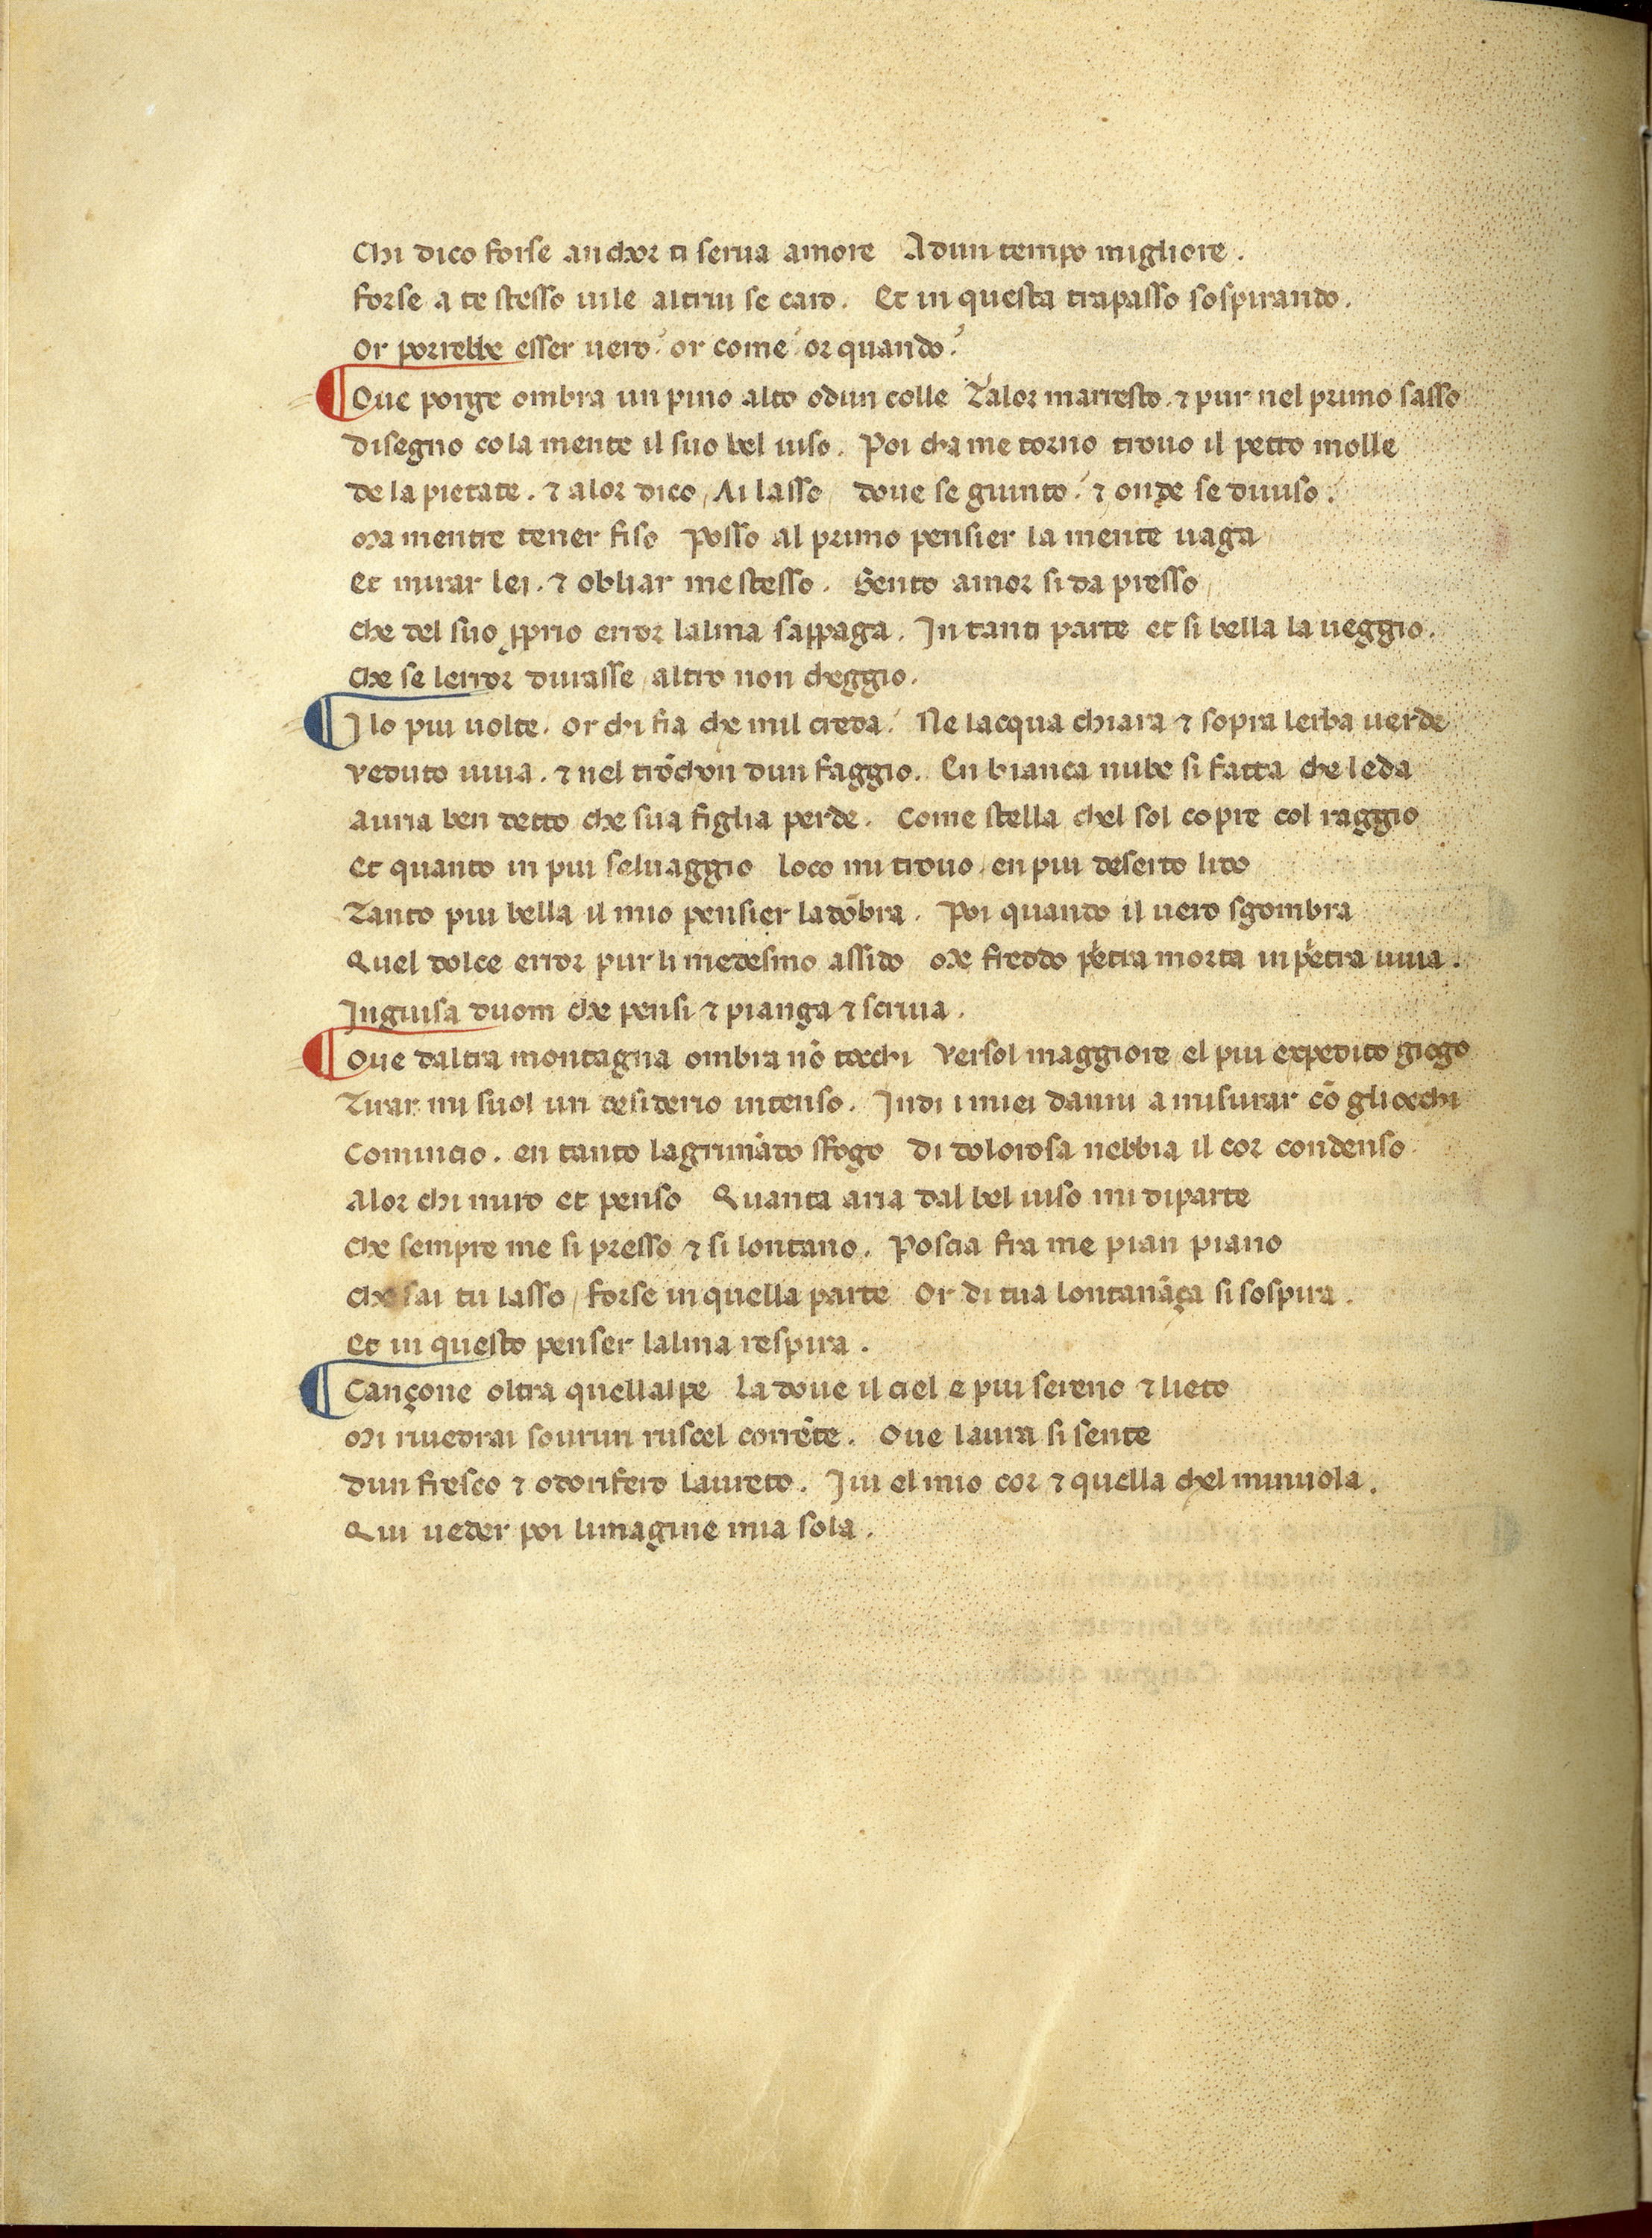 Chi dico forse anchor ti serua amore Adun tempo migliore.
forse a te stesso uile altrui se caro. Et in questa trapasso sospirando.
Or porrebbe esser uero? or come? or quando?
Oue porge ombra un pino alto odun colle Talor marresto. ⁊ pur nel primo sasso
disegno co la mente il suo bel uiso. Poi cha me torno trouo il petto molle
de la pietate. ⁊ alor dico / Ai lasso / doue se giunto? ⁊ onde se diuiso?
Ma mentre tener fiso Posso al primo pensier la mente uaga
Et mirar lei. ⁊ obliar me stesso. Sento amor si da presso /
che del suo ꝓprio error lalma sappaga. In tanti parte et si bella la ueggio.
Che se lerror durasse / altro non cheggio.
I lo piu uolte. or chi fia che mil creda? Ne lacqua chiara ⁊ sopra lerba uerde
veduto uiua. ⁊ nel trōchon dun faggio. En bianca nube si fatta che leda
auria ben detto che sua figlia perde. Come stella chel sol copre col raggio
Et quanto in piu seluaggio loco mi trouo / en piu deserto lido
Tanto piu bella il mio pensier ladōbra. Poi quando il uero sgombra
Quel dolce error pur li medesmo assido Me freddo petra morta in petra uiua.
Inguisa duom che pensi ⁊ pianga ⁊ scriua.
Oue daltra montagna ombra nō tocchi versol maggiore el piu expedito giogo
Tirar mi suol un desiderio intenso. Indi i miei danni a misurar cō gliocchi
Comincio. en tanto lagrimādo sfogo di dolorosa nebbia il cor condenso
Alor chi miro et penso Quanta aria dal bel uiso mi diparte
Che sempre me si presso ⁊ si lontano. Poscia fra me pian piano
che sai tu lasso / forse in quella parte Or di tua lontanāça si sospira.
Et in questo penser lalma respira.
Cançone oltra quellalpe La doue il ciel e piu sereno ⁊ lieto
Mi riuedrai sourun ruscel corrēte. Oue laura si sente
dun fresco ⁊ odorifero laureto. Iui el mio cor ⁊ quella chel minuola.
Qui ueder poi limagine mia sola.